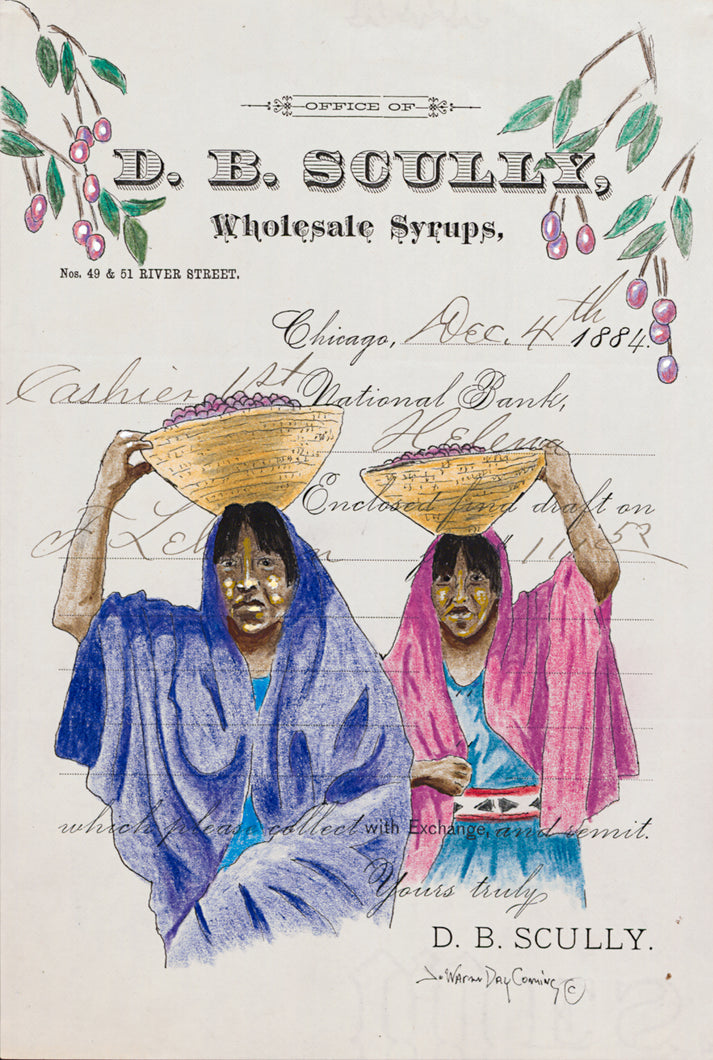 OFFICE OF
D. B. SCULLY,
Wholesale Syrups,
Nos. 49 & 51 RIVER STREET.
Chicago, Dec. 4th 1884.
Cashier 1st National Bank,
Helena
Enclosed find draft on
which please collect with Exchange, and remit.
Yours truly
D. B. SCULLY.
Warren Day Coming ©